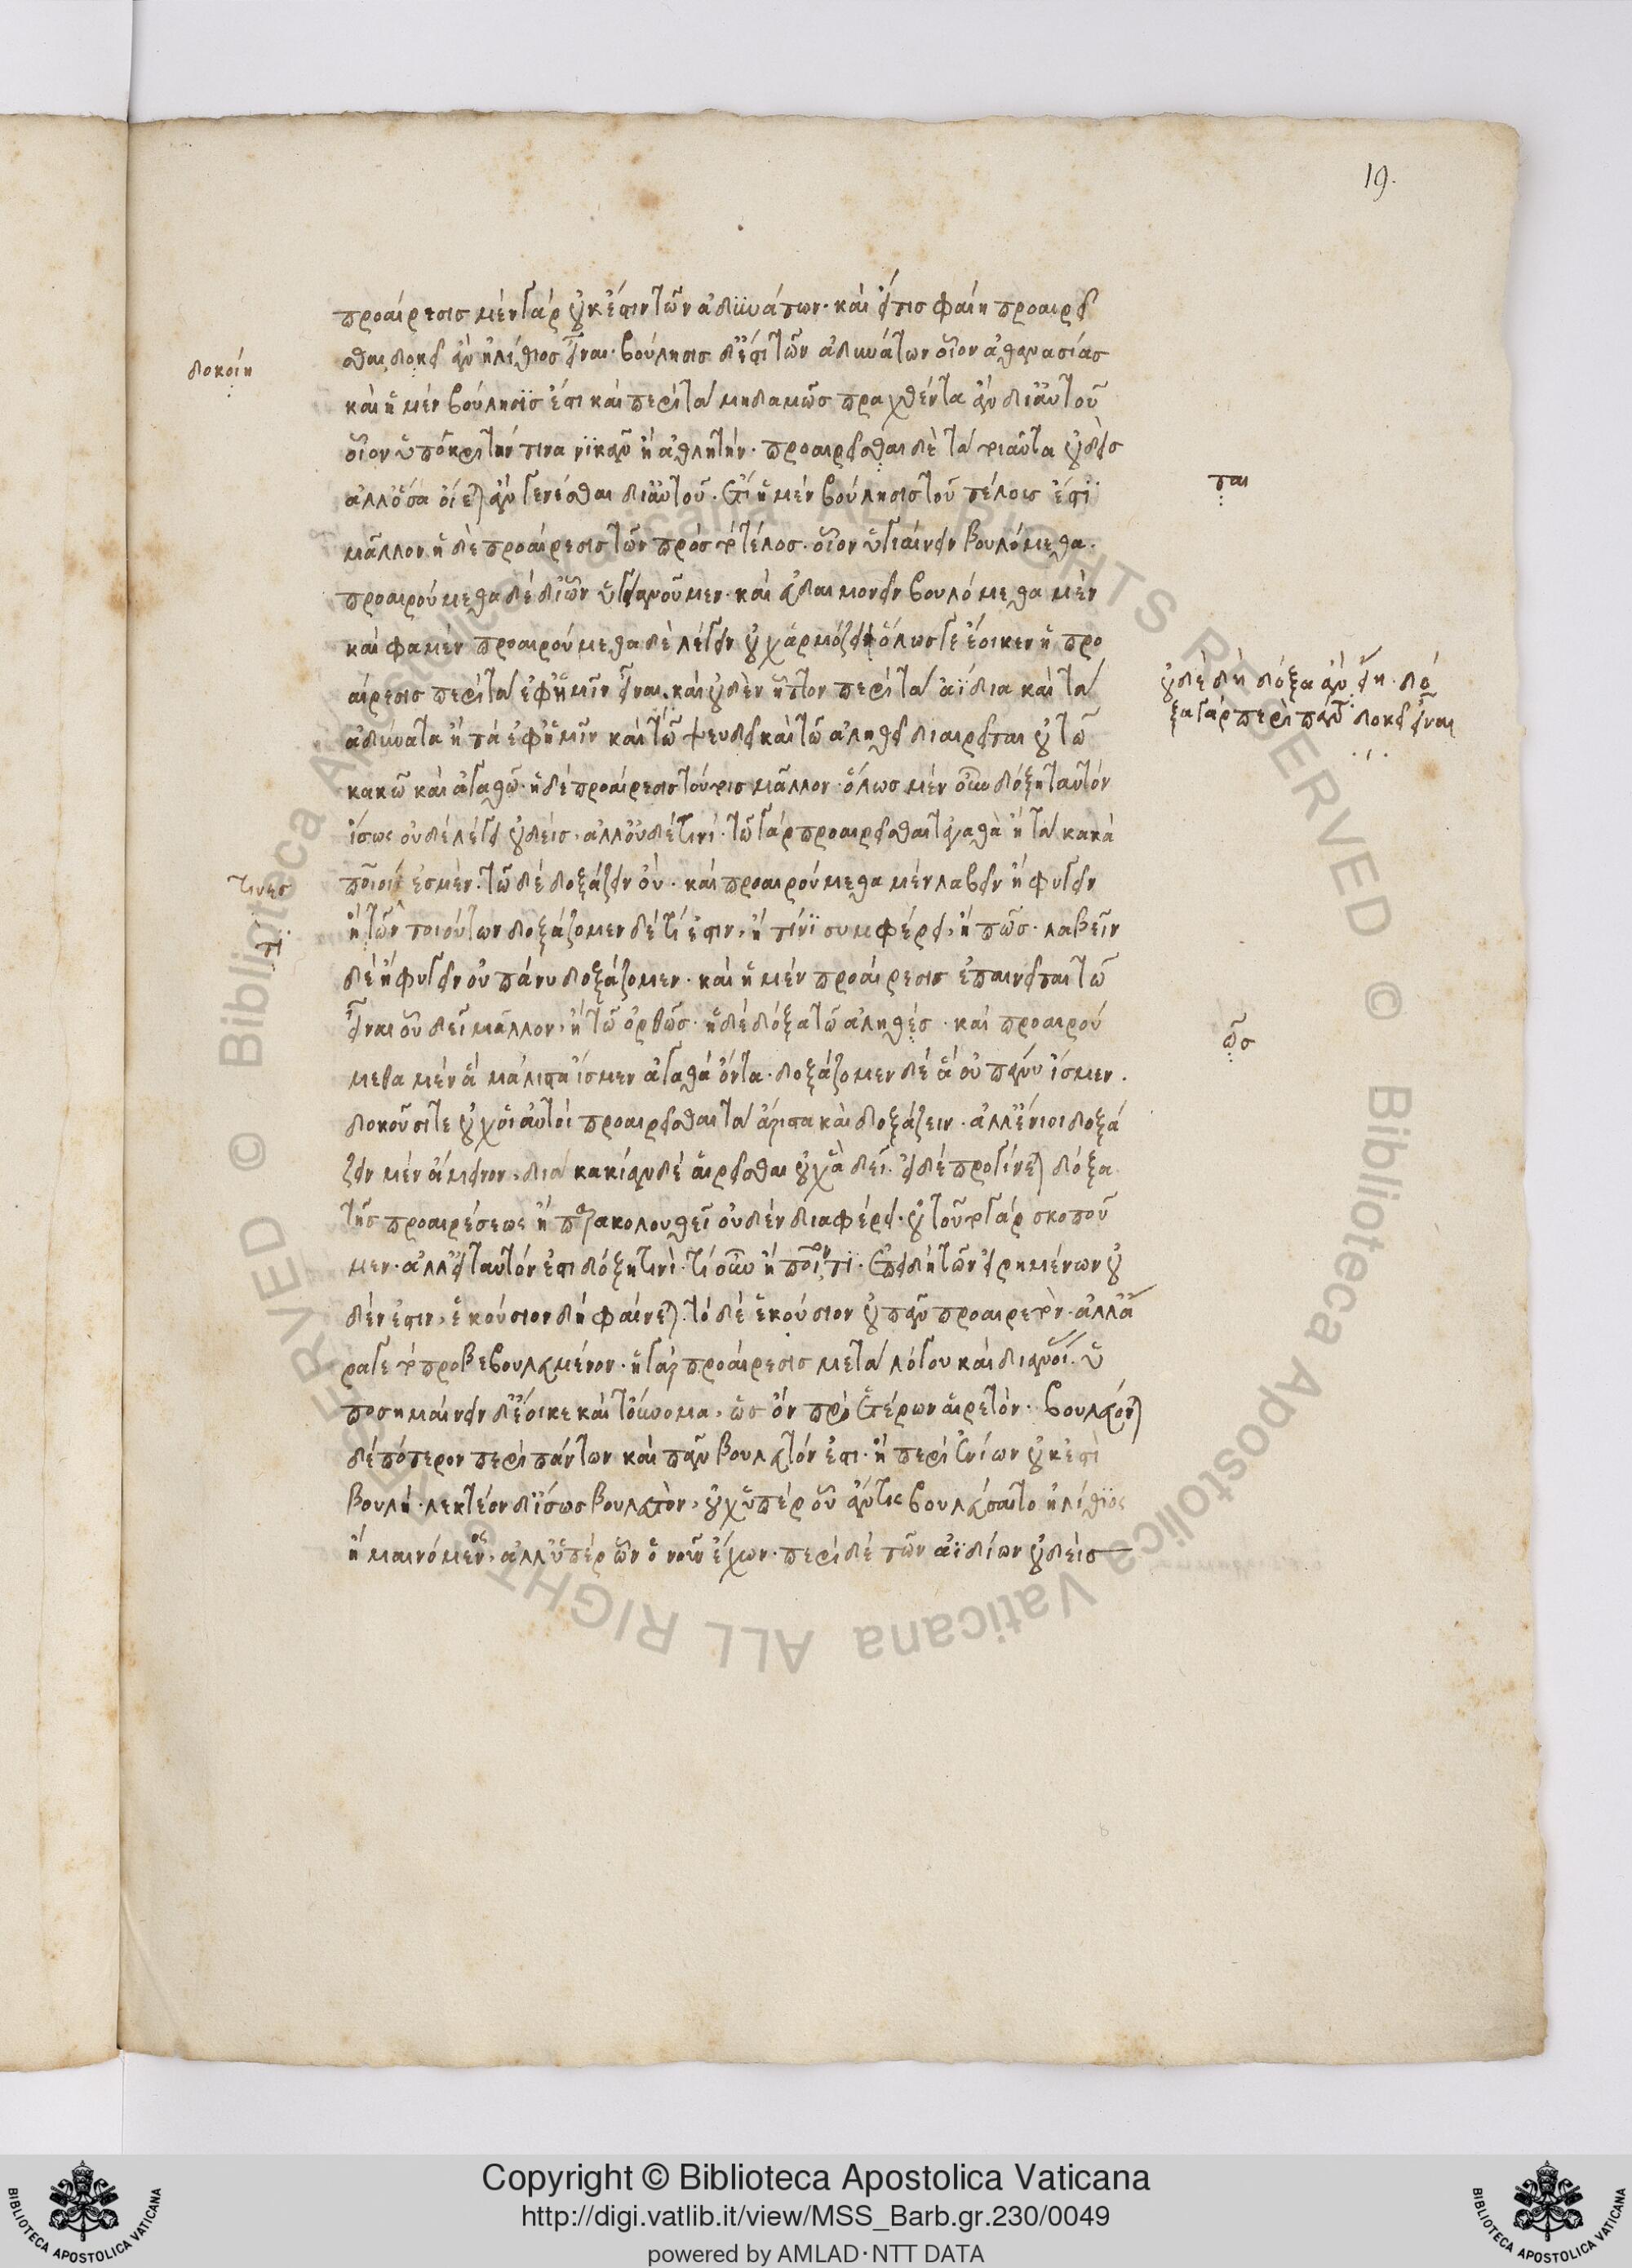 19.
προαίρεσις μὲν γὰρ οὐκ ἔστιν τῶν ἀδυνάτων· καὶ εἴ τις φαίη προαιρεῖ
σθαι, δοκεῖ ἂν ἠλίθιος εἶναι· βούλησις δ' ἔστι τῶν ἀδυνάτων οἷον ἀθανασίας
δοκοίη
καὶ ἡ μὲν βούλησίς ἐστι καὶ περὶ τὰ μηδαμῶς πραχθέντα ἂν δι' αὑτοῦ
οἷον ὑποκριτήν τινα νικᾶν ἢ ἀθλητήν· προαιρεῖσθαι δὲ τὰ τοιαῦτα οὐδεὶς
ἀλλ' ὅσα οἴεται ἂν γενέσθαι δι' αὑτοῦ. ἔτι ἡ μὲν βούλησις τοῦ τέλους ἐστὶ
ται
μᾶλλον ἡ δὲ προαίρεσις τῶν πρὸς τὸ τέλος· οἷον ὑγιαίνειν βουλόμεθα·
προαιρούμεθα δὲ δι' ὧν ὑγιανοῦμεν· καὶ εὐδαιμονεῖν βουλόμεθα μὲν
καὶ φαμέν προαιρούμεθα δὲ λέγειν οὐχ ἁρμόζει ὅλως γε ἔοικεν ἡ προ
αίρεσις περὶ τὰ ἐφ' ἡμῖν εἶναι. καὶ οὐδὲν ἧττον περὶ τὰ ἀΐδια καὶ τὰ
οὐδὲ δὴ δόξα ἂν εἴη· δό
ξα γὰρ περὶ πάντα δοκεῖ εἶναι
ἀδύνατα ἢ τὰ ἐφ' ἡμῖν καὶ τῶ ψευδεῖ καὶ τῶ ἀληθεῖ διαιρεῖται οὐ τῶ
κακῶ καὶ ἀγαθῶ· ἡ δὲ προαίρεσις τούτοις μᾶλλον· ὅλως μὲν οὖν δόξη ταὐτόν
ἴσως οὐδὲ λέγει οὐδείς· ἀλλ' οὐδέ τινί· τῶ γὰρ προαιρεῖσθαι τἀγαθὰ ἢ τὰ κακά
ποιοί ἐσμέν· τῶ δὲ δοξάζειν οὔ· καὶ προαιρούμεθα μὲν λαβεῖν ἢ φυγεῖν
τινες
ἢ τῶν τοιούτων δοξάζομεν δὲ τί ἐστιν, ἢ τίνι συμφέρει, ἢ πῶς· λαβεῖν
τι
δὲ ἢ φυγεῖν οὐ πάνυ δοξάζομεν· καὶ ἡ μὲν προαίρεσις ἐπαινεῖται τῶ
εἶναι οὗ δεῖ μᾶλλον, ἢ τῶ ὀρθῶς· ἡ δὲ δόξα τῶ ἀληθές· καὶ προαιρού
ῶς
μεθα μὲν ἃ μάλιστα ἴσμεν ἀγαθὰ ὄντα· δοξάζομεν δὲ ἃ οὐ πάνυ ἴσμεν.
δοκοῦσί τε οὐχ οἱ αὐτοὶ προαιρεῖσθαι τὰ ἄριστα καὶ δοξάζειν· ἀλλ' ἔνιοι δοξά
ζειν μὲν ἄμεινον, διὰ κακίαν δὲ αἱρεῖσθαι οὐχ ἃ δεῖ. εἰ δὲ προγίνεται δόξα
τῆς προαιρέσεως ἢ παρακολουθεῖ οὐδὲν διαφέρει· οὐ τοῦτο γὰρ σκοποῦ
μεν· ἀλλ' εἰ ταὐτόν ἐστι δόξη τινί· τί οὖν ἢ ποῖόν τι· ἐπειδὴ τῶν εἰρημένων οὐ
δέν ἐστιν, ἑκούσιον δὴ φαίνεται τὸ δὲ ἑκούσιον οὐ πᾶν προαιρετόν· ἀλλ' ἆ
ρά γε τὸ προβεβουλευμένον· ἡ γὰρ προαίρεσις μετὰ λόγου καὶ διανοίας ὑ
ποσημαίνειν δ' ἔοικε καὶ τοὔνομα, ὡς ὂν πρὸ ἑτέρων αἱρετόν· βουλεύονται
δὲ πότερον περὶ πάντων καὶ πᾶν βουλευτόν ἐστι· ἢ περὶ ἐνίων οὐκ ἔστι
βουλή· λεκτέον δ' ἴσως βουλευτὸν, οὐχ ὑπὲρ οὗ ἄν τις βουλεύσαιτο ἠλίθιος
ἢ μαινόμενος, ἀλλ' ὑπὲρ ὧν ὁ νοῦν ἔχων· περὶ δὲ τῶν ἀϊδίων οὐδεὶς
Copyright © Biblioteca Apostolica Vaticana
http://digi.vatlib.it/view/MSS_Barb.gr.230/0049
powered by AMLAD·NTT DATA
BIBLIOTECA APOSTOLICA VATICANA
BIBLIOTECA APOSTOLICA VATICANA
© Biblioteca Apostolica Vaticana ALL RIGHTS RESERVED © Biblioteca Apostolica Vaticana ALL RIGHTS RESERVED